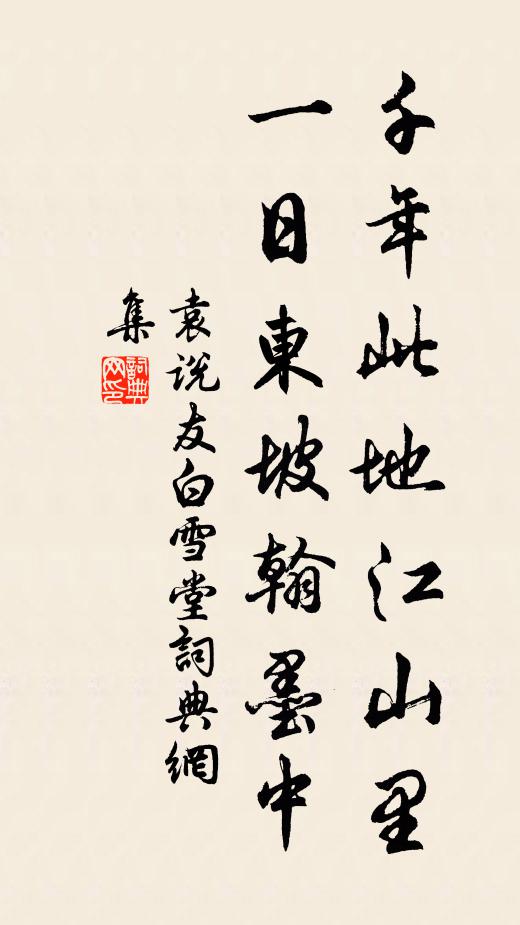 千年此地江山里
一日東坡翰墨中
袁说友白雪堂詞典網
集
詞典网印